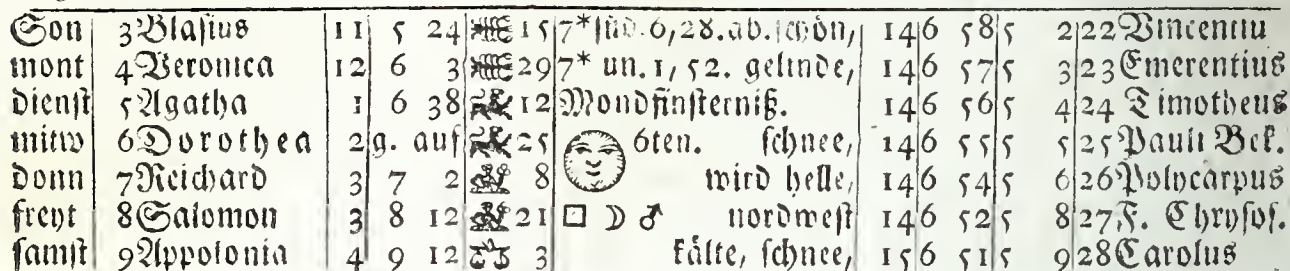 Son 3 Blasius 11 5 24 15 7* süd. 6, 28. ab. schön, 14 6 58 5 2 22 Vincentiu
mont 4 Veronica 12 6 3 29 7* un. 1, 52. gelinde, 14 6 57 5 3 23 Emerentius
dienst 5 Agatha 1 6 38 12 Mondfinsterniß. 14 6 56 5 4 24 Timotheus
mitw 6 Dorothea 2 g. auf 25 6ten. schnee, 14 6 55 5 5 25 Pauli Bek.
donn 7 Reichard 3 7 2 8 wird helle, 14 6 54 5 6 26 Polycarpus
freyt 8 Salomon 3 8 12 21 □ ☽ ♂ nordwest 14 6 52 5 8 27 F. Chrysos.
samst 9 Appolonia 4 9 12 3 kälte, schnee, 15 6 51 5 9 28 Carolus